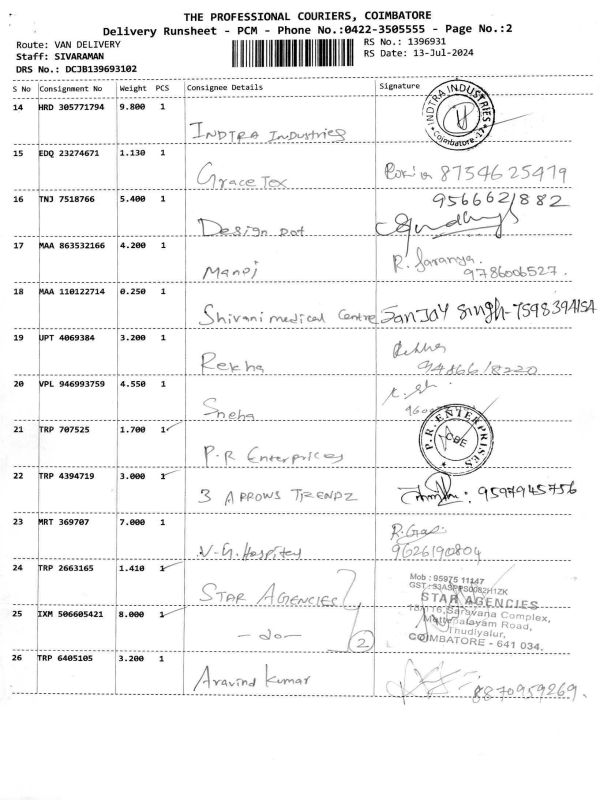 THE PROFESSIONAL COURIERS, COIMBATORE
Delivery Runsheet - PCM - Phone No.:0422-3505555 - Page No.:2
Route: VAN DELIVERY
RS No.: 1396931
Staff: SIVARAMAN
RS Date: 13-Jul-2024
DRS No.: DCJB139693102
S No Consignment No Weight PCS Consignee Details Signature
14 HRD 305771794 9.800 1
INDTRA INDUSTRIES
Coimbatore.-17
INDTRA Industries
15 EDQ 23274671 1.130 1
Grace Tex 8754625479
16 TNJ 7518766 5.400 1
9566621882
Design dot
17 MAA 863532166 4.200 1
Manoj R. Saranya.
9786006527.
18 MAA 110122714 0.250 1
Shivani medical Centre Sanjay Singh-7598394154
19 UPT 4069384 3.200 1
Rekha
20 VPL 946993759 4.550 1
Sneha
21 TRP 707525 1.700 1
P.R. ENTERPRISES
CBE
P.R Enterprices
22 TRP 4394719 3.000 1
3 ARROWS TRENDZ : 9597945756
23 MRT 369707 7.000 1
V.G. Hospital 9626190804
24 TRP 2663165 1.410 1
STAR AGENCIES
Mob : 95975 11147
STAR AGENCIES
Saravana Complex,
Mettupalayam Road,
Thudiyalur,
COIMBATORE - 641 034.
25 IXM 506605421 8.000 1
-do- 2
26 TRP 6405105 3.200 1
Aravind Kumar 8870959269.